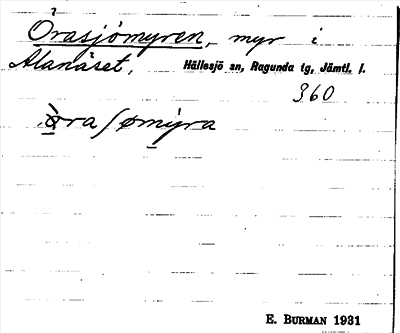 Orasjömyren, myr i
Alanäset, Hällesjö sn, Ragunda tg, Jämtl. l.
360
E. BURMAN 1931